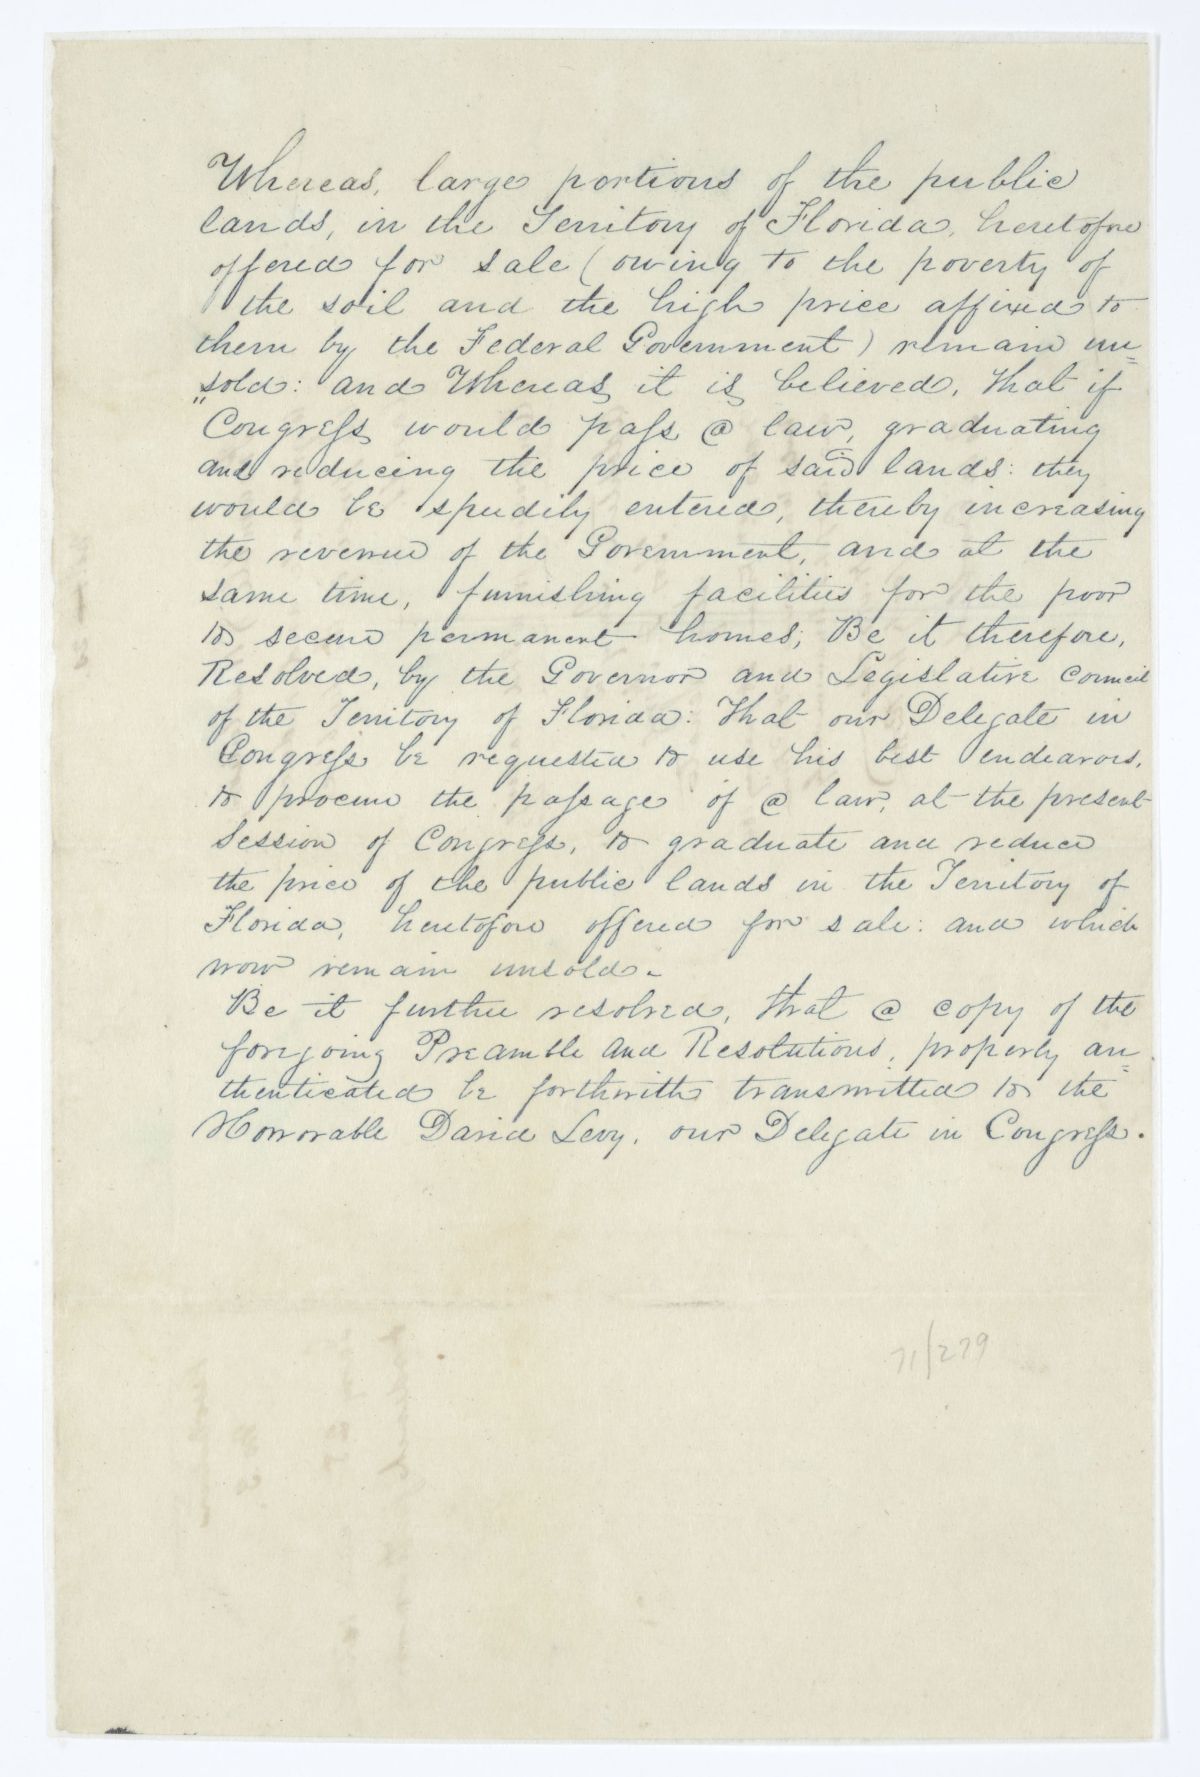 Whereas, large portions of the public
lands, in the Territory of Florida, heretofore
offered for sale (owing to the poverty of
the soil and the high price affixed to
them by the Federal Government) remain un=
"sold: and Whereas, it is believed, that if
Congress would pass @ law, graduating
and reducing the price of said lands: they
would be speedily entered, thereby increasing
the revenue of the Government, and at the
same time, furnishing facilities for the poor
to secure permanent homes; Be it therefore,
Resolved, by the Governor and Legislative Council
of the Territory of Florida: That our Delegate in
Congress be requested to use his best endeavors,
to procure the passage of @ law, at the present
Session of Congress, to graduate and reduce
the price of the public lands in the Territory of
Florida, heretofore offered for sale: and which
now remain unsold.
Be it further resolved, that @ copy of the
foregoing Preamble and Resolutions, properly au=
thenticated be forthwith transmitted to the
Honorable David Levy, our Delegate in Congress.
71/279